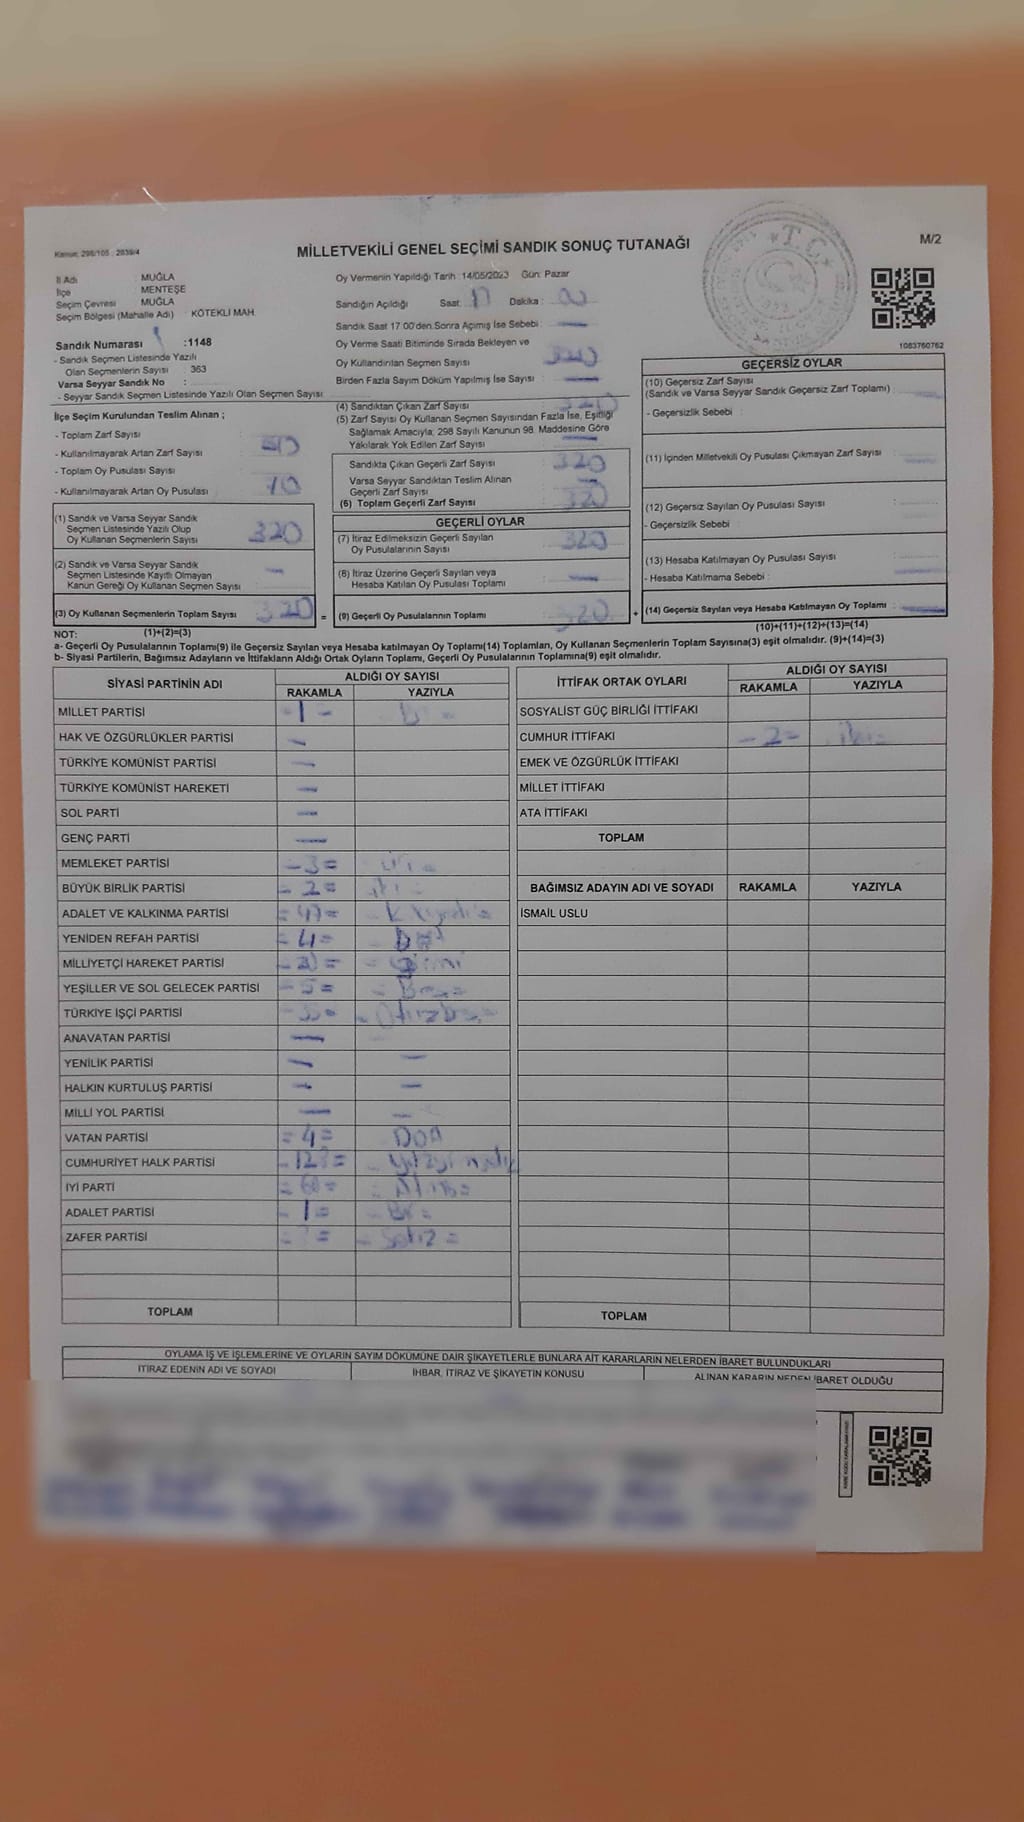 Kanun: 298/105 : 2839/4
MİLLETVEKİLİ GENEL SEÇİMİ SANDIK SONUÇ TUTANAĞI
M/2
T.C.
İl Adı : MUĞLA
İlçe : MENTEŞE
Seçim Çevresi : MUĞLA
Seçim Bölgesi (Mahalle Adı) : KÖTEKLİ MAH.
Sandık Numarası :1148
- Sandık Seçmen Listesinde Yazılı
Olan Seçmenlerin Sayısı : 363
Varsa Seyyar Sandık No :
- Seyyar Sandık Seçmen Listesinde Yazılı Olan Seçmen Sayısı
Oy Vermenin Yapıldığı Tarih : 14/05/2023 Gün: Pazar
Sandığın Açıldığı Saat: 17 Dakika :
Sandık Saat 17.00'den Sonra Açımış İse Sebebi :
Oy Verme Saati Bitiminde Sırada Bekleyen ve
Oy Kullandırılan Seçmen Sayısı :
Birden Fazla Sayım Döküm Yapılmış İse Sayısı :
1083760762
İlçe Seçim Kurulundan Teslim Alınan ;
- Toplam Zarf Sayısı :
- Kullanılmayarak Artan Zarf Sayısı :
- Toplam Oy Pusulası Sayısı :
- Kullanılmayarak Artan Oy Pusulası :
(1) Sandık ve Varsa Seyyar Sandık
Seçmen Listesinde Yazılı Olup
Oy Kullanan Seçmenlerin Sayısı : 320
(2) Sandık ve Varsa Seyyar Sandık
Seçmen Listesinde Kayıtlı Olmayan
Kanun Gereği Oy Kullanan Seçmen Sayısı : —
(3) Oy Kullanan Seçmenlerin Toplam Sayısı : 320 =
(4) Sandıktan Çıkan Zarf Sayısı : 320
(5) Zarf Sayısı Oy Kullanan Seçmen Sayısından Fazla İse, Eşitliği
Sağlamak Amacıyla; 298 Sayılı Kanunun 98. Maddesine Göre
Yakılarak Yok Edilen Zarf Sayısı : —
Sandıkta Çıkan Geçerli Zarf Sayısı : 320
Varsa Seyyar Sandıktan Teslim Alınan
Geçerli Zarf Sayısı : —
(6) Toplam Geçerli Zarf Sayısı : 320
GEÇERLİ OYLAR
(7) İtiraz Edilmeksizin Geçerli Sayılan
Oy Pusulalarının Sayısı : 320
(8) İtiraz Üzerine Geçerli Sayılan veya
Hesaba Katılan Oy Pusulası Toplamı : —
(9) Geçerli Oy Pusulalarının Toplamı : 320 +
GEÇERSİZ OYLAR
(10) Geçersiz Zarf Sayısı
(Sandık ve Varsa Seyyar Sandık Geçersiz Zarf Toplamı) : —
- Geçersizlik Sebebi :
(11) İçinden Milletvekili Oy Pusulası Çıkmayan Zarf Sayısı : —
(12) Geçersiz Sayılan Oy Pusulası Sayısı :
- Geçersizlik Sebebi :
(13) Hesaba Katılmayan Oy Pusulası Sayısı :
- Hesaba Katılmama Sebebi : —
(14) Geçersiz Sayılan veya Hesaba Katılmayan Oy Toplamı : —
(10)+(11)+(12)+(13)=(14)
NOT: (1)+(2)=(3)
a- Geçerli Oy Pusulalarının Toplamı(9) ile Geçersiz Sayılan veya Hesaba katılmayan Oy Toplamı(14) Toplamları, Oy Kullanan Seçmenlerin Toplam Sayısına(3) eşit olmalıdır. (9)+(14)=(3)
b- Siyasi Partilerin, Bağımsız Adayların ve İttifakların Aldığı Ortak Oyların Toplamı, Geçerli Oy Pusulalarının Toplamına(9) eşit olmalıdır.
SİYASİ PARTİNİN ADI ALDIĞI OY SAYISI
RAKAMLA YAZIYLA
MİLLET PARTİSİ -1-
HAK VE ÖZGÜRLÜKLER PARTİSİ —
TÜRKİYE KOMÜNİST PARTİSİ —
TÜRKİYE KOMÜNİST HAREKETİ —
SOL PARTİ —
GENÇ PARTİ —
MEMLEKET PARTİSİ -3=
BÜYÜK BİRLİK PARTİSİ = 2=
ADALET VE KALKINMA PARTİSİ = 47=
YENİDEN REFAH PARTİSİ = 4=
MİLLİYETÇİ HAREKET PARTİSİ
YEŞİLLER VE SOL GELECEK PARTİSİ - 5= = Beş=
TÜRKİYE İŞÇİ PARTİSİ -35= = Otuzbeş=
ANAVATAN PARTİSİ —
YENİLİK PARTİSİ — —
HALKIN KURTULUŞ PARTİSİ — —
MİLLİ YOL PARTİSİ — —
VATAN PARTİSİ = 4=
CUMHURİYET HALK PARTİSİ
İYİ PARTİ
ADALET PARTİSİ - 1= - Bir=
ZAFER PARTİSİ - Sekiz =
TOPLAM
İTTİFAK ORTAK OYLARI ALDIĞI OY SAYISI
RAKAMLA YAZIYLA
SOSYALİST GÜÇ BİRLİĞİ İTTİFAKI
CUMHUR İTTİFAKI - 2= - iki=
EMEK VE ÖZGÜRLÜK İTTİFAKI
MİLLET İTTİFAKI
ATA İTTİFAKI
TOPLAM
BAĞIMSIZ ADAYIN ADI VE SOYADI RAKAMLA YAZIYLA
İSMAİL USLU
TOPLAM
OYLAMA İŞ VE İŞLEMLERİNE VE OYLARIN SAYIM DÖKÜMÜNE DAİR ŞİKAYETLERLE BUNLARA AİT KARARLARIN NELERDEN İBARET BULUNDUKLARI
İTİRAZ EDENİN ADI VE SOYADI İHBAR, İTİRAZ VE ŞİKAYETİN KONUSU ALINAN KARARIN NEDEN İBARET OLDUĞU